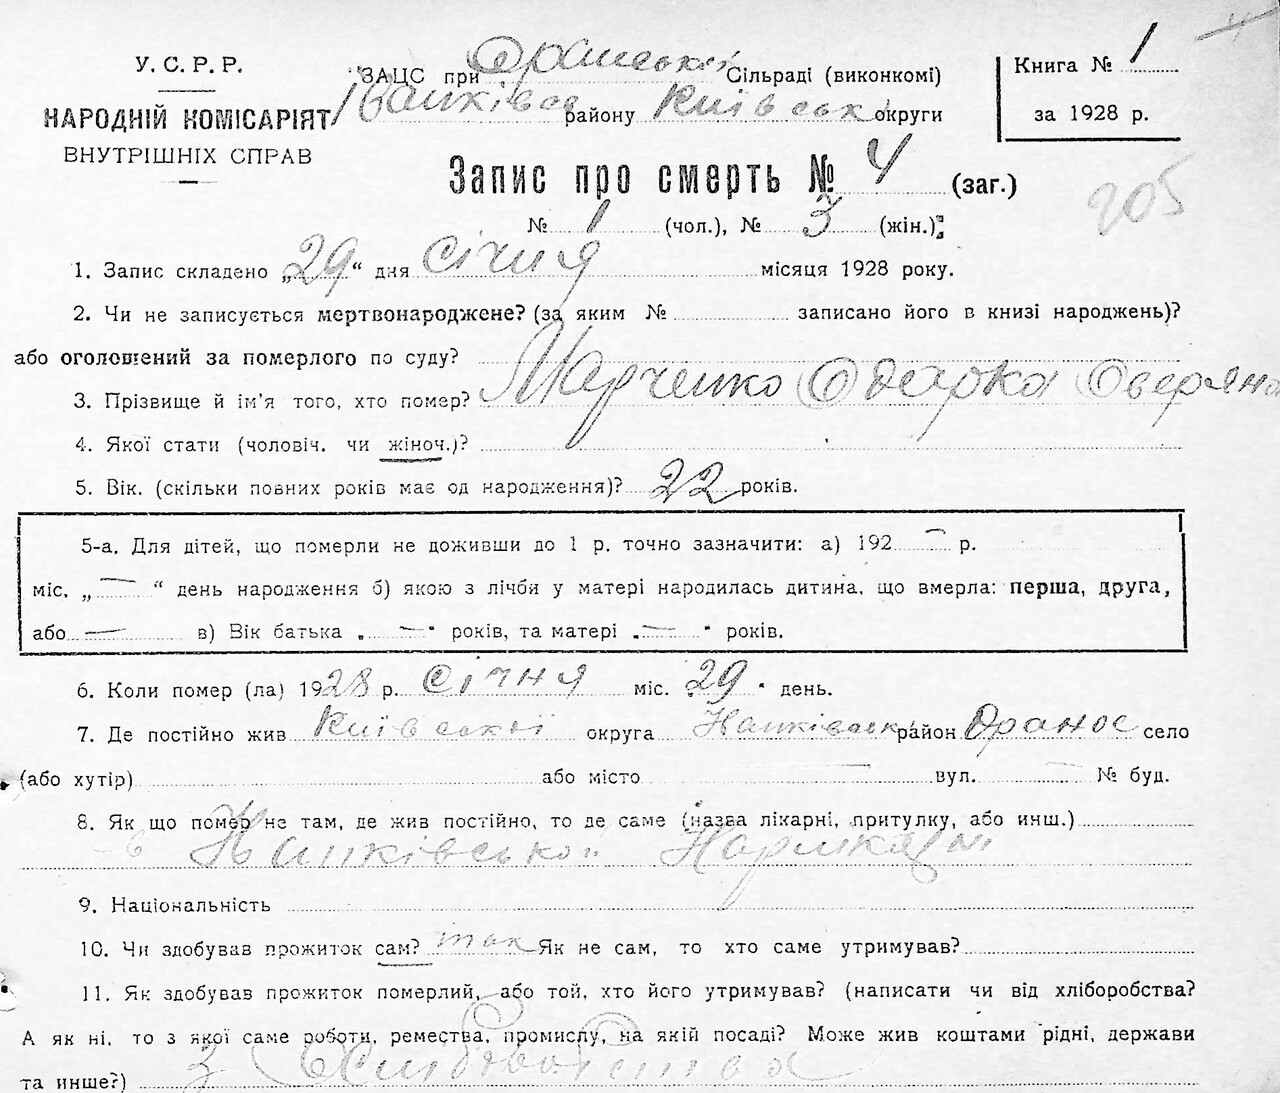 У. С. Р. Р.
НАРОДНІЙ КОМІСАРІЯТ
ВНУТРІШНІХ СПРАВ
ЗАЦС при Оранській Сільраді (виконкомі)
району Київськ округи
Книга № 1
за 1928 р.
Запис про смерть № 4 (заг.)
205
№ 1 (чол.), № 3 (жін.);
1. Запис складено „29“ дня Січня місяця 1928 року.
2. Чи не записується мертвонароджене? (за яким № записано його в книзі народжень)?
або оголошений за померлого по суду?
3. Прізвище й ім'я того, хто помер? Марченко Одарка Оверяно
4. Якої стати (чоловіч. чи жіноч.)?
5. Вік. (скільки повних років має од народження)? 22 років.
5-а. Для дітей, що померли не доживши до 1 р. точно зазначити: а) 192 — р.
міс. „ — “ день народження б) якою з лічби у матері народилась дитина, що вмерла: перша, друга,
або — в) Вік батька „ — " років, та матері „ — " років.
6. Коли помер (ла) 1928 р. Січня міс. 29 " день.
7. Де постійно жив Київської округа район Оране село
(або хутір) або місто — вул. — № буд.
8. Як що помер не там, де жив постійно, то де саме (назва лікарні, притулку, або инш.)
в
9. Національність
10. Чи здобував прожиток сам? так Як не сам, то хто саме утримував?
11. Як здобував прожиток померлий, або той, хто його утримував? (написати чи від хліборобства?
А як ні, то з якої саме роботи, ремества, промислу, на якій посаді? Може жив коштами рідні, держави
та инше?) З Хліборобства